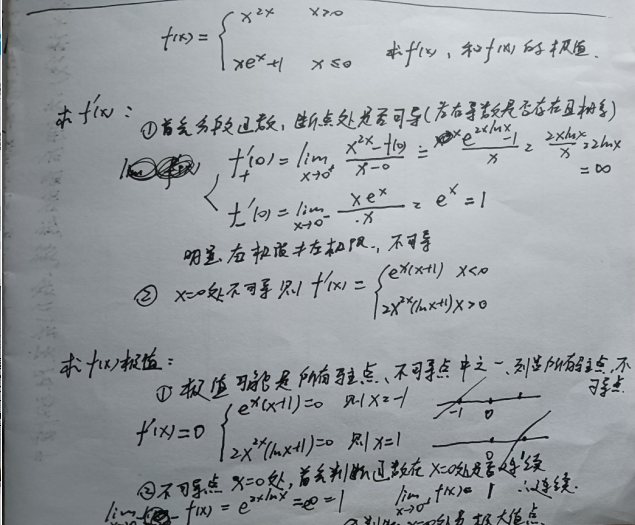 f(x) = { x^{2x} x>0
xe^x+1 x≤0 求f'(x)、和f(x)的极值.
求f'(x): ①首先分段函数,断点处是否可导(左右导数是否存在且相等)
f'_+(0) = lim_{x→0^+} \frac{x^{2x}-f(0)}{x-0} = \frac{e^{2xlnx}-1}{x} = \frac{2xlnx}{x} = 2lnx
= ∞
f'_-(0) = lim_{x→0^-} \frac{xe^x}{x} = e^x = 1
明显 右极限≠左极限., 不可导
② x=0处不可导 则 f'(x) = { e^x(x+1) x<0
2x^{2x}(lnx+1) x>0
求f(x)极值:
①极值可能是所有驻点、不可导点中之一、列出所有驻点,不
可导点.
f'(x)=0 { e^x(x+1)=0 则 x=-1 -1 0
2x^{2x}(lnx+1)=0 则 x=1 0
②不可导点 x=0处,首先判断函数在x=0处是否连续
f(x) = e^{2xlnx} = 1 lim_{x→0^-} f(x) = 1 ∴连续.
x=0 极大值点